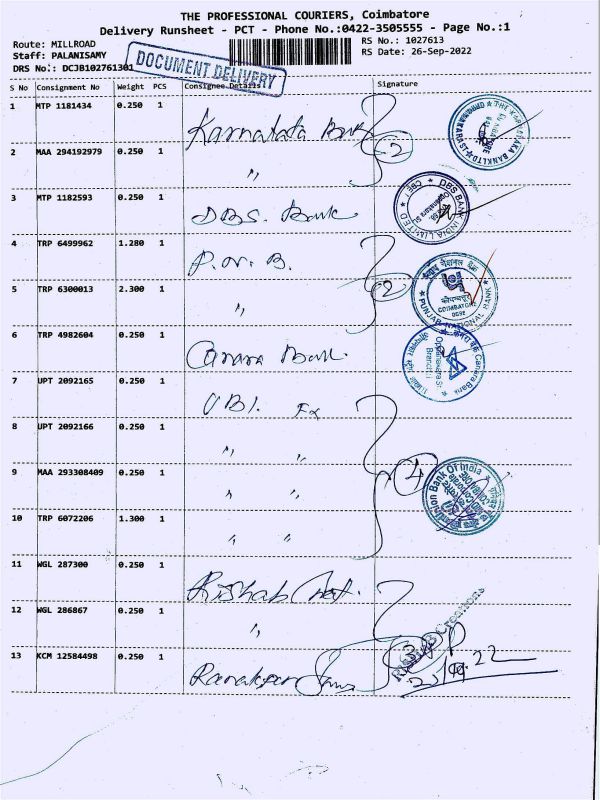 THE PROFESSIONAL COURIERS, Coimbatore
Delivery Runsheet - PCT - Phone No.:0422-3505555 - Page No.:1
Route: MILLROAD RS No.: 1027613
Staff: PALANISAMY RS Date: 26-Sep-2022
DRS No.: DCJB102761301
DOCUMENT DELIVERY
S No Consignment No Weight PCS Consignee Details Signature
1 MTP 1181434 0.250 1 Karnataka Bank
2 MAA 294192979 0.250 1 " 2
3 MTP 1182593 0.250 1 DBS. Bank
4 TRP 6499962 1.280 1 P.N.B.
5 TRP 6300013 2.300 1 " 2
6 TRP 4982604 0.250 1 Canara Bank
7 UPT 2092165 0.250 1 UBI.
8 UPT 2092166 0.250 1 " "
9 MAA 293308409 0.250 1 " " 4
10 TRP 6072206 1.300 1 " "
11 WGL 287300 0.250 1 Rishab
12 WGL 286867 0.250 1 " 3
13 KCM 12584498 0.250 1
THE KARNATAKA BANK LTD
DBS BANK INDIA LIMITED
CBE
पंजाब नैशनल बैंक
PUNJAB NATIONAL BANK
COIMBATORE
केनरा बैंक Canara Bank
Oppanakara St.
Branch
Union Bank Of India
Creations